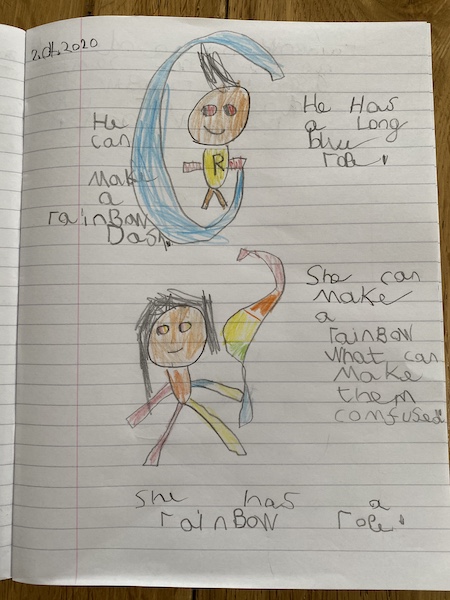 2.04.2020
He
can
Make
a
rainBow
Dash.
R
He Has
a Long
blue
robe.
She can
Make
a
rainBow
what can
Make
them
confused
She has a
rainBow robe.